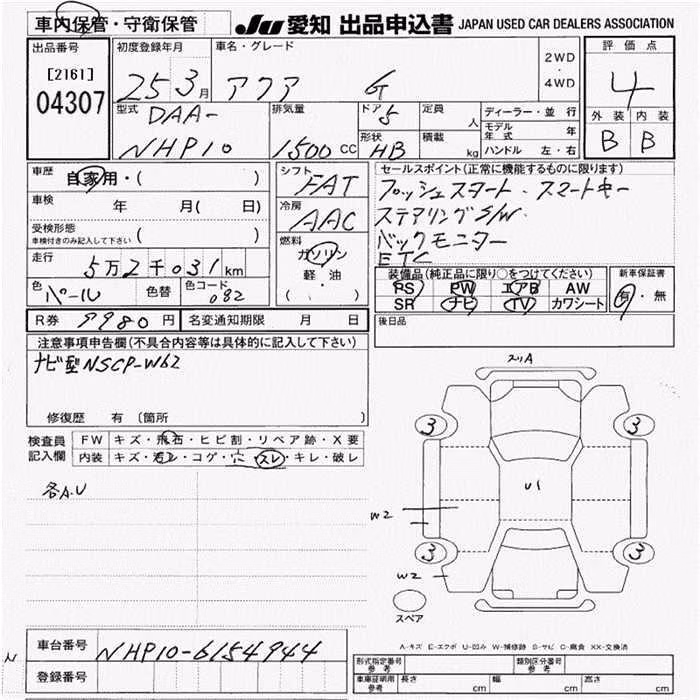 車内保管・守衛保管
JU 愛知 出品申込書 JAPAN USED CAR DEALERS ASSOCIATION
出品番号
[2161]
04307
初度登録年月
25 3月
車名・グレード
アクア G
2WD
・
4WD
評価点
4
外装 内装
B B
型式
DAA-
NHP10
排気量
1500 CC
ドア 5
形状
HB
定員
人
積載
kg
ディーラー・並行
モデル年式 年
ハンドル 左・右
車歴
自家用・( )
車検
年 月( 日)
受検形態
車検付きのみ記入して下さい ( )
走行
5万2千031km
色
パール
色替
色コード
082
R券 9980円
名変通知期限 月 日
シフト
FAT
冷房
AAC
燃料
ガソリン
軽・油
( )
セールスポイント(正常に機能するものに限ります)
プッシュスタート・スマートキー
ステアリングS/W.
バックモニター
ETC
装備品(純正品に限り○をつけてください)
PS PW エアB AW
SR ナビ TV カワシート
新車保証書
有・無
後日品
注意事項申告欄(不具合内容等は具体的に記入して下さい)
ナビ型NSCP-W62
修復歴 有 (箇所 )
検査員
記入欄
FW キズ・飛石・ヒビ割・リペア跡・X要
内装 キズ・汚レ・コゲ・穴・スレ・キレ・破レ
各A.U
スリA
3
3
U1
W2
3
3
W2
スペア
A-キズ E-エクボ U-凹み W-補修跡 S-サビ C-腐食 XX-交換済
車台番号 NHP10-6154944
登録番号
N
形式指定番号
参考
類別区分番号
参考
車庫証明用
参考
長さ cm 幅 cm 高さ cm